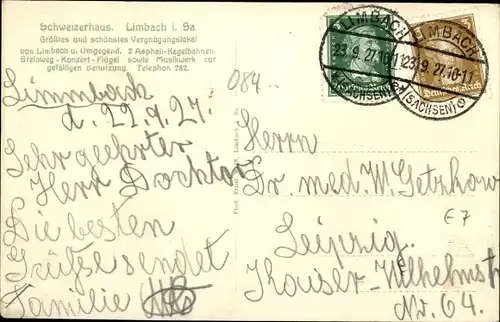 Schweizerhaus. Limbach i. Sa.
Größtes und schönstes Vergnügungslokal
von Limbach u. Umgegend. 2 Asphalt-Kegelbahnen
Steinweg-Konzert-Flügel sowie Musikwerk zur
gefälligen Benutzung. Telephon 282.
Limmbach
d. 22.9.27.
Sehr geehrter
Herr Docktor
Die besten
Grüße sendet
Familie
084
LIMBACH
23.9.27.10-11
(SACHSEN)
LIMBACH
23.9.27.10-11
(SACHSEN)
Deutsches Reich
Herrn
Dr. med. W. Getzkow
E7
Leipzig.
Kaiser-Wilhelmstr
No. 64.